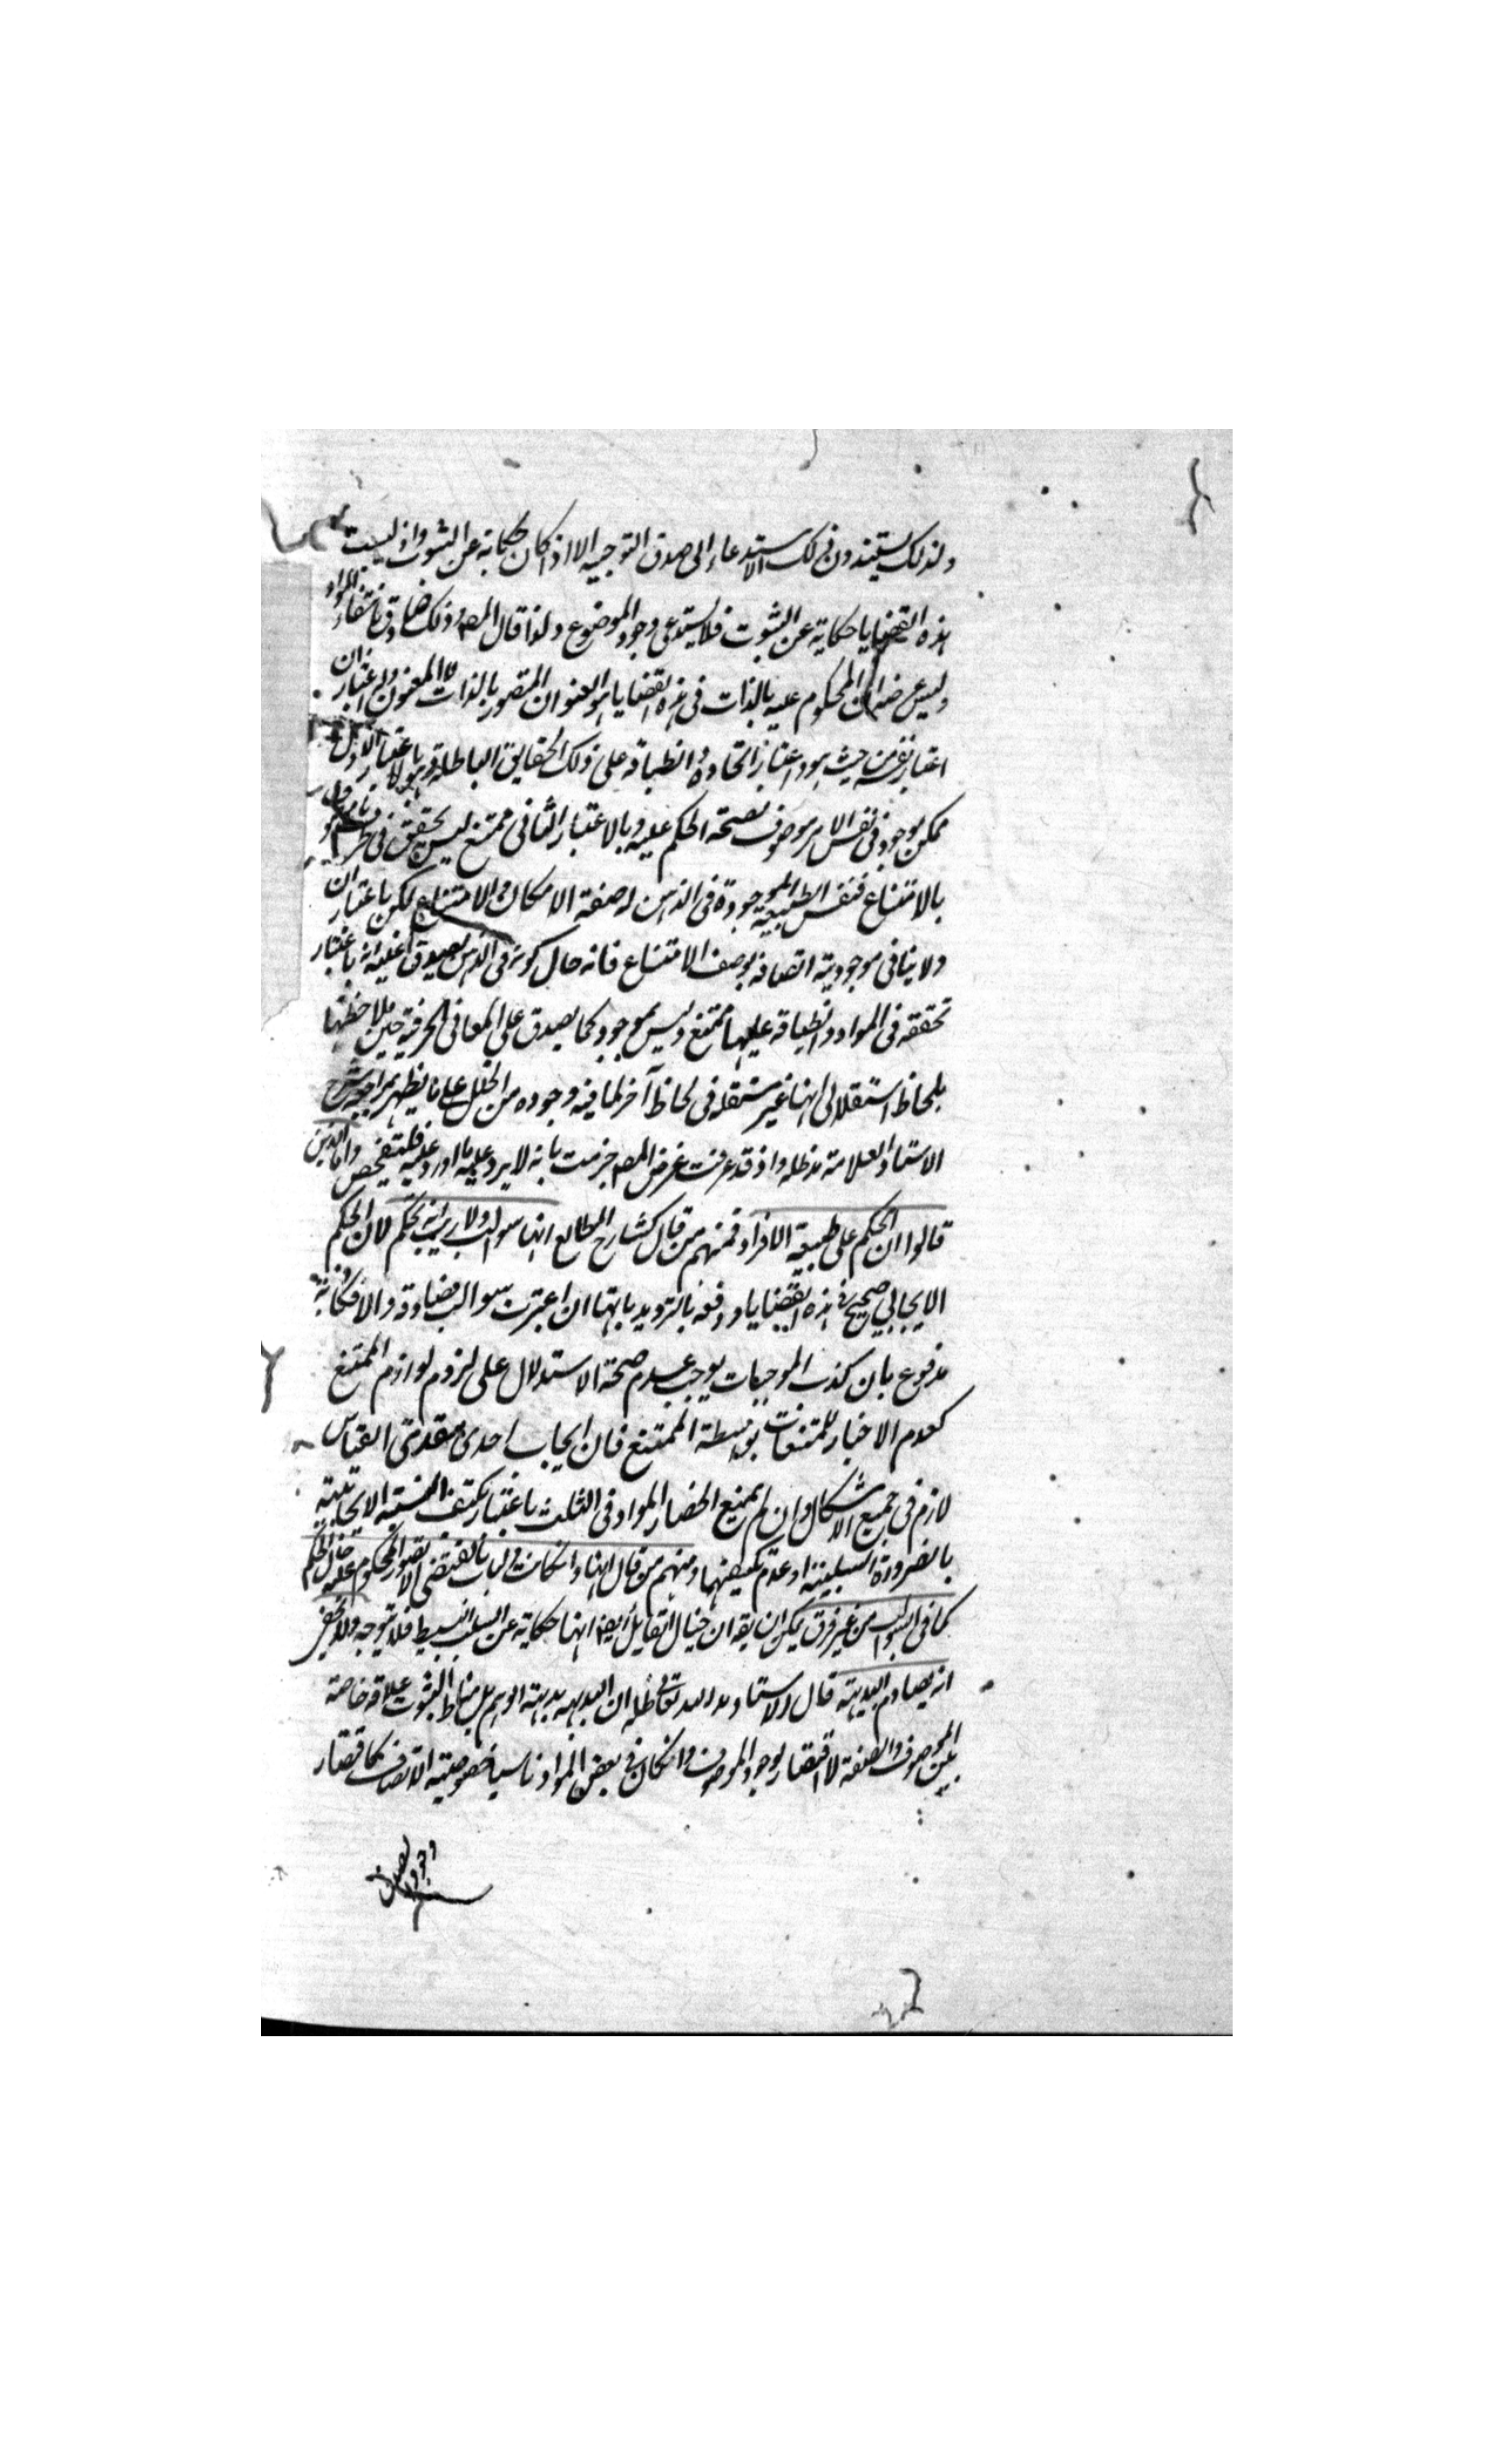 ولذلك يستندون ذلك الاستدعاء الى صدق التوجيه الا اذا كان حكاية عن الثبوت واذ ليست
هذه القضايا حكاية عن الثبوت فلا يستدعى وجود الموضوع ولذا قال المصـ وذلك صادق بانتفاء المواد
وليس غرضه ان المحكوم عليه بالذات فى هذه القضايا هو العنوان المتصور بالذات لا المعنون
اعتبار نفسه من حيث هو واعتبار اتحاده وانطباقه على ذلك الحقايق الباطلة وهو بالاعتبار الاول
ممكن موجود فى نفس الامر موصوف بصحة الحكم عليه وبالاعتبار الثانى ممتنع ليس بمتحقق فى
بالامتناع فنفس الطبيعة الموجودة فى الذهن له صفة الامكان والامتناع لكن باعتباران
ولا ينافى موجودية اتصافه بوصف الامتناع فانه حال كونه فى الذهن يصدق عليه انه باعتبار
تحققه فى المواد وانطباقه عليها ممتنع وليس بموجود كما يصدق على المعانى الحرفية حين ملاحظتها
بلحاظ استقلالى انها غير مستقلة فى لحاظ آخر لما فيه وجوده من الخلل على ما يظهر بمراجعة شرح
الاستاد العلامة مد ظله واذ قد عرفت غرض المصـ جزمت بانه لا يرد عليه ما اورد عليه فليتفحص واما الذين
قالوا ان الحكم على طبيعة الافراد فمنهم من قال كشارح المطالع انها سوالب ولا ريب انه تحكم لان الحكم
الايجابى صحيح فى هذه القضايا ودفعه بالترديد بانها ان اعتبرت سوالب فصادقة والا فكاذبة
مدفوع بان كذب الموجبات يوجب عدم صحة الاستدلال على لزوم لوازم الممتنع
كعدم الاخبار للممتنعات بواسطة الممتنع فان ايجاب احدى مقدمتى القياس
لازم فى جميع الاشكال وان لم يمنع انحصار المواد فى الثلث باعتبار تكيف النسبة الايجابية
بالضرورة السلبية او عدم تكيفهما ومنهم من قال انها وان كانت موجبات لا تقتضى الا تصور المحكوم عليه حال الحكم
كما فى السوالب من غير فرق يمكن ان يقـ ان خيال القايل ايضا انها حكاية عن السلب البسيط فلا يتوجه ولا يخفى
انه يصادم البديهة قال الاستاد مد الله تعالى ظله ان البديهة بديهة الوهم بل مناط الثبوت علاقة خاصة
بين الموصوف والصفة لا اقتضاء وجود الموصوف وان كان فى بعض المواد ناسيا خصوصية الاتصاف كاقتضاء